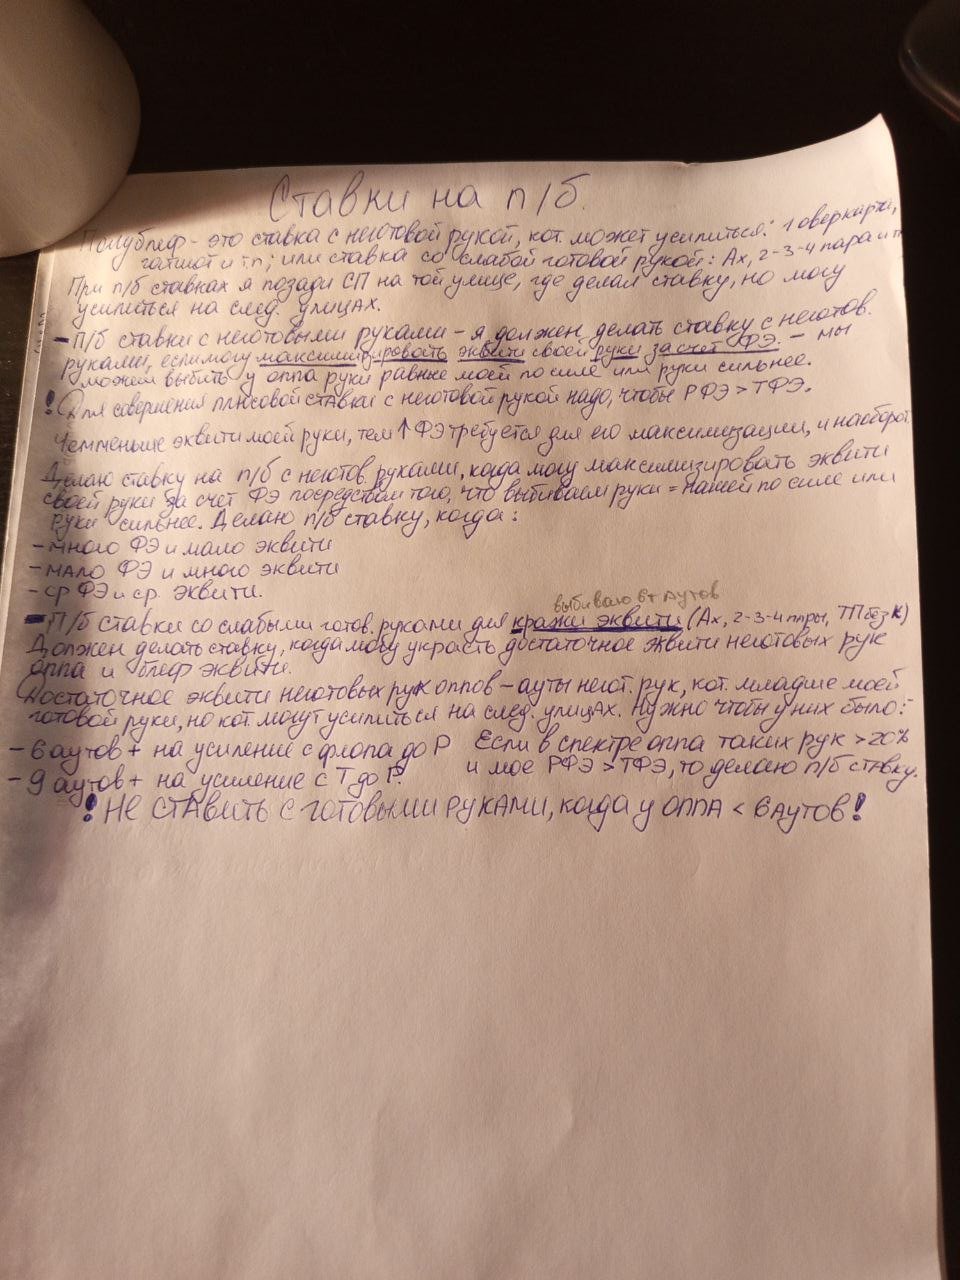 Ставки на п/б.
Полублеф - это ставка с неготовой рукой, кот. может усилиться: 1 оверкарта,
гатшот и т.п; или ставка со слабой готовой рукой: Ах, 2-3-4 пара и тп
При п/б ставках я позади СП на той улице, где делал ставку, но могу
усилиться на след. улицах.
- П/б ставки с неготовыми руками - я должен делать ставку с неготов.
руками, если могу максимизировать эквити своей руки за счет ФЭ. - мы
можем выбить у оппа руки равные моей по силе или руки сильнее.
! Для совершения плюсовой ставки с неготовой рукой надо, чтобы РФЭ > ТФЭ.
Чем меньше эквити моей руки, тем ↑ ФЭ требуется для его максимизации, и наоборот
Делаю ставку на п/б с неготов. руками, когда могу максимизировать эквити
своей руки за счет ФЭ посредством того, что выбиваем руки = нашей по силе или
руки сильнее. Делаю п/б ставку, когда:
- много ФЭ и мало эквити
- мало ФЭ и много эквити
- ср ФЭ и ср. эквити.
выбиваю 6+ аутов
- П/б ставки со слабыми готов. руками для кражи эквити (Ах, 2-3-4 пры, ТП без К)
Должен делать ставку, когда могу украсть достаточное эквити неготовых рук
оппа и блеф эквити.
Достаточное эквити неготовых рук оппов - ауты негот. рук, кот. младше моей
готовой руки, но кот. могут усилиться на след. улицах. Нужно чтобы у них было:
- 6 аутов + на усиление с флопа до Р Если в спектре оппа таких рук > 20%
- 9 аутов + на усиление с Т до Р. и мое РФЭ > ТФЭ, то делаю п/б ставку.
! Не ставить с готовыми руками, когда у оппа < 6 аутов!